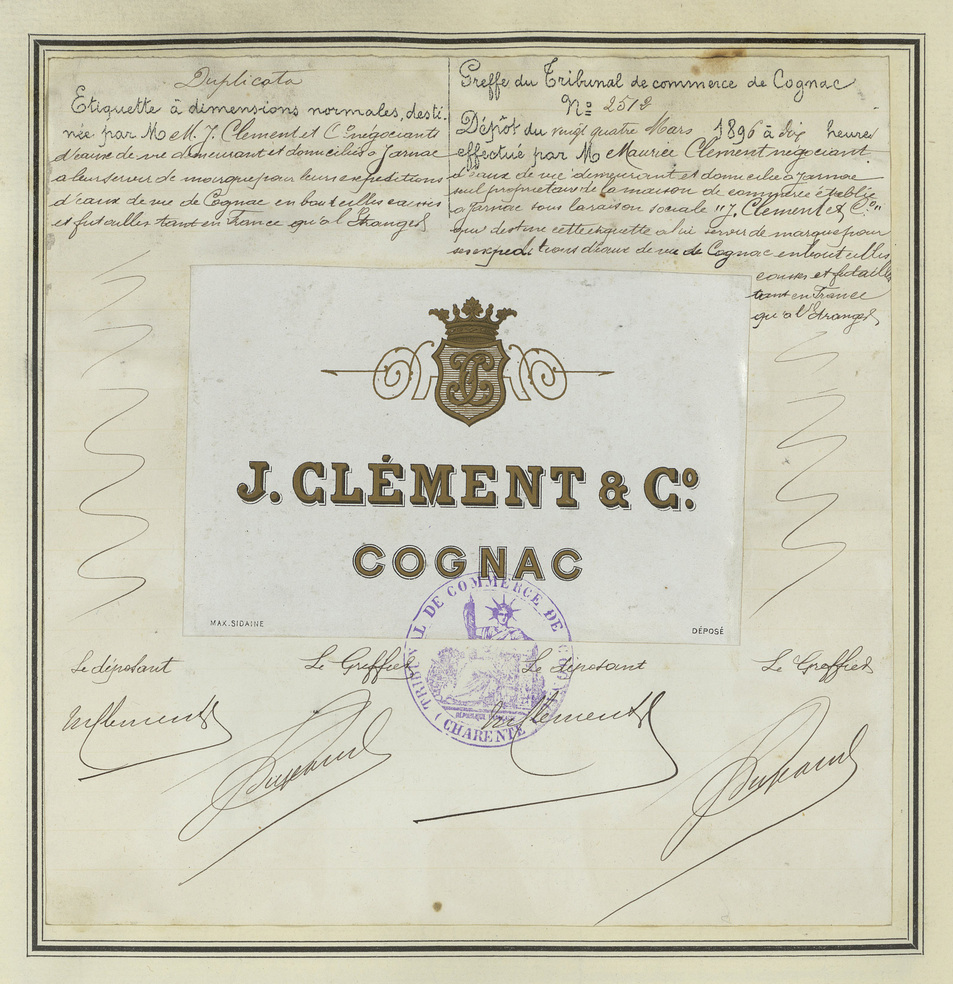 Duplicata
Etiquette à dimensions normales, desti-
née par M eM. J. Clement et Co négociants
d'eaux de vie demeurant et domiciliés à Jarnac
a leur servir de marque pour leurs expeditions
d'eaux de vie de Cognac en bouteilles caisses
et futailles tant en France qu'a l'Etranger
Greffe du Tribunal de commerce de Cognac
No 2519
Dépôt du vingt quatre Mars 1896 à dix heures
effectué par M Maurice Clement négociant
d'eaux de vie demeurant et domicilié à Jarnac
seul propriétaire de la maison de commerce établie
a Jarnac sous la raison sociale "J. Clement & Co"
qui destine cette etiquette a lui servir de marque pour
ses expeditions d'eaux de vie de Cognac en bouteilles
caisses et futailles
tant en France
qu'a l'Etranger
JC
J. CLÉMENT & Co.
COGNAC
MAX. SIDAINE
DÉPOSÉ
TRIBUNAL DE COMMERCE DE
CHARENTE
Le déposant Le Greffier Le déposant Le Greffier
MClement MClement